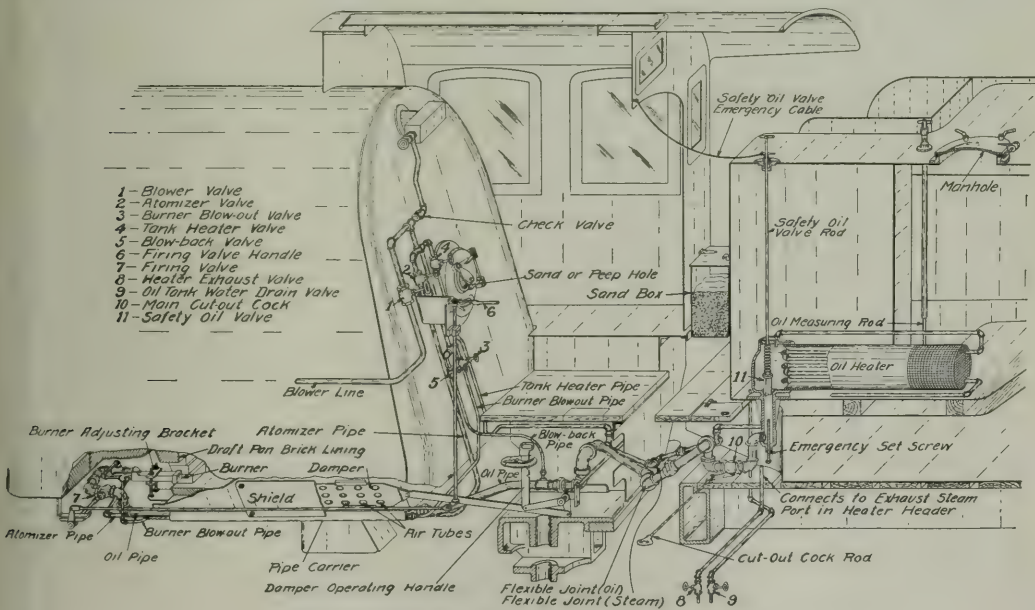 Safety Oil Valve
Emergency Cable
Manhole
1-Blower Valve
2-Atomizer Valve
3-Burner Blow-out Valve
4-Tank Heater Valve
5-Blow-back Valve
6-Firing Valve Handle
7-Firing Valve
8-Heater Exhaust Valve
9-Oil Tank Water Drain Valve
10-Main Cut-out Cock
11-Safety Oil Valve
Check Valve
Safety Oil
Valve Rod
4
2
Sand or Peep Hole
Sand Box
1
6
Oil Measuring Rod
3
5
11
Oil Heater
Blower Line
Tank Heater Pipe
Burner Blowout Pipe
Burner Adjusting Bracket
Atomizer Pipe
Blow-back
Pipe
10
Emergency Set Screw
Draft Pan Brick Lining
Burner
Damper
Oil Pipe
7
Shield
Connects to Exhaust Steam
Port in Heater Header
Atomizer Pipe
Burner Blowout Pipe
Air Tubes
Oil Pipe
Pipe Carrier
Cut-Out Cock Rod
Damper Operating Handle
Flexible Joint (Oil)
Flexible Joint (Steam)
8
9